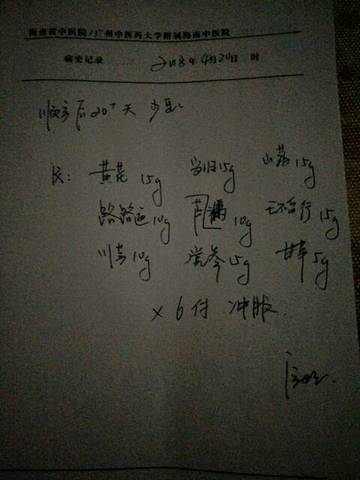 海南省中医院/广州中医药大学附属海南中医院
病史记录 2018年4月20日 时
顺产后20+天 少乳
黄芪15g 当归15g 山药15g
路路通10g 10g 王不留行15g
川芎10g 党参15g 甘草5g
×6付 冲服